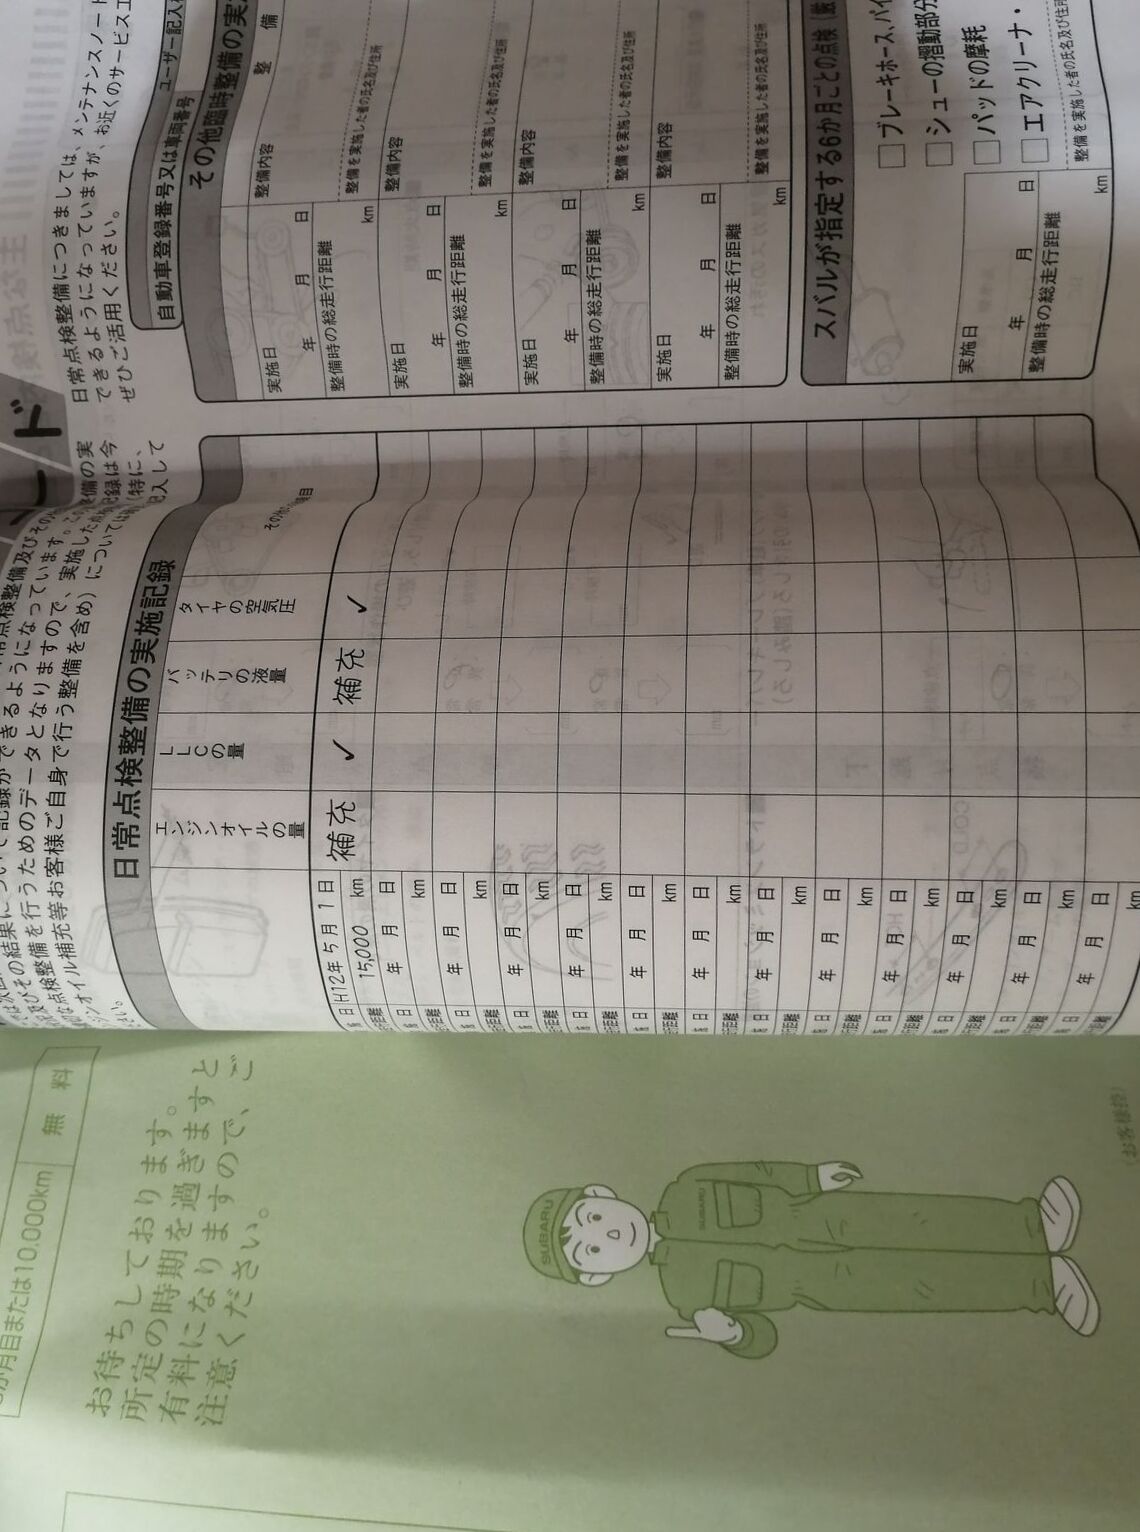 ード
日常点検整備につきましては、メンテナンスノート
できるようになっていますが、お近くのサービスエ
ぜひご活用ください。
常点検整備及びその
て記録ができるようになっています。
及びその結果に
点検整備を行うためのデータとなりますので、実施した
オイル補充等お客様ご自身で行う整備を含め）については
備の実
録は今
(特に、
記入して
さい。
自動車登録番号又は車両番号
ユーザー記入
日常点検整備の実施記録
エンジンオイルの量
LLCの量
バッテリの液量
タイヤの空気圧
その他
H12年5月1日
15,000 km
補充
✓
補充
✓
年 月 日
km
年 月 日
km
年 月 日
km
年 月 日
km
年 月 日
km
年 月 日
km
年 月 日
km
年 月 日
km
年 月 日
km
年 月 日
km
年 月 日
km
年 月 日
km
その他臨時整備の実
整 備
実施日
年 月 日
整備内容
整備時の総走行距離
km
整備を実施した者の氏名及び住所
実施日
年 月 日
整備内容
整備時の総走行距離
km
整備を実施した者の氏名及び住所
実施日
年 月 日
整備内容
整備時の総走行距離
km
整備を実施した者の氏名及び住所
実施日
年 月 日
整備内容
整備時の総走行距離
km
整備を実施した者の氏名及び住所
スバルが指定する6か月ごとの点検
□ブレーキホース、パイ
□シューの摺動部分
□パッドの摩耗
□エアクリーナ・
実施日
年 月 日
整備時の総走行距離
km
整備を実施した者の氏名及び住所
か月目または10,000km
無 料
お待ちしております。
所定の時期を過ぎますと
有料になりますので、ご
注意ください。
SUBARU
SUBARU
(お客様控)